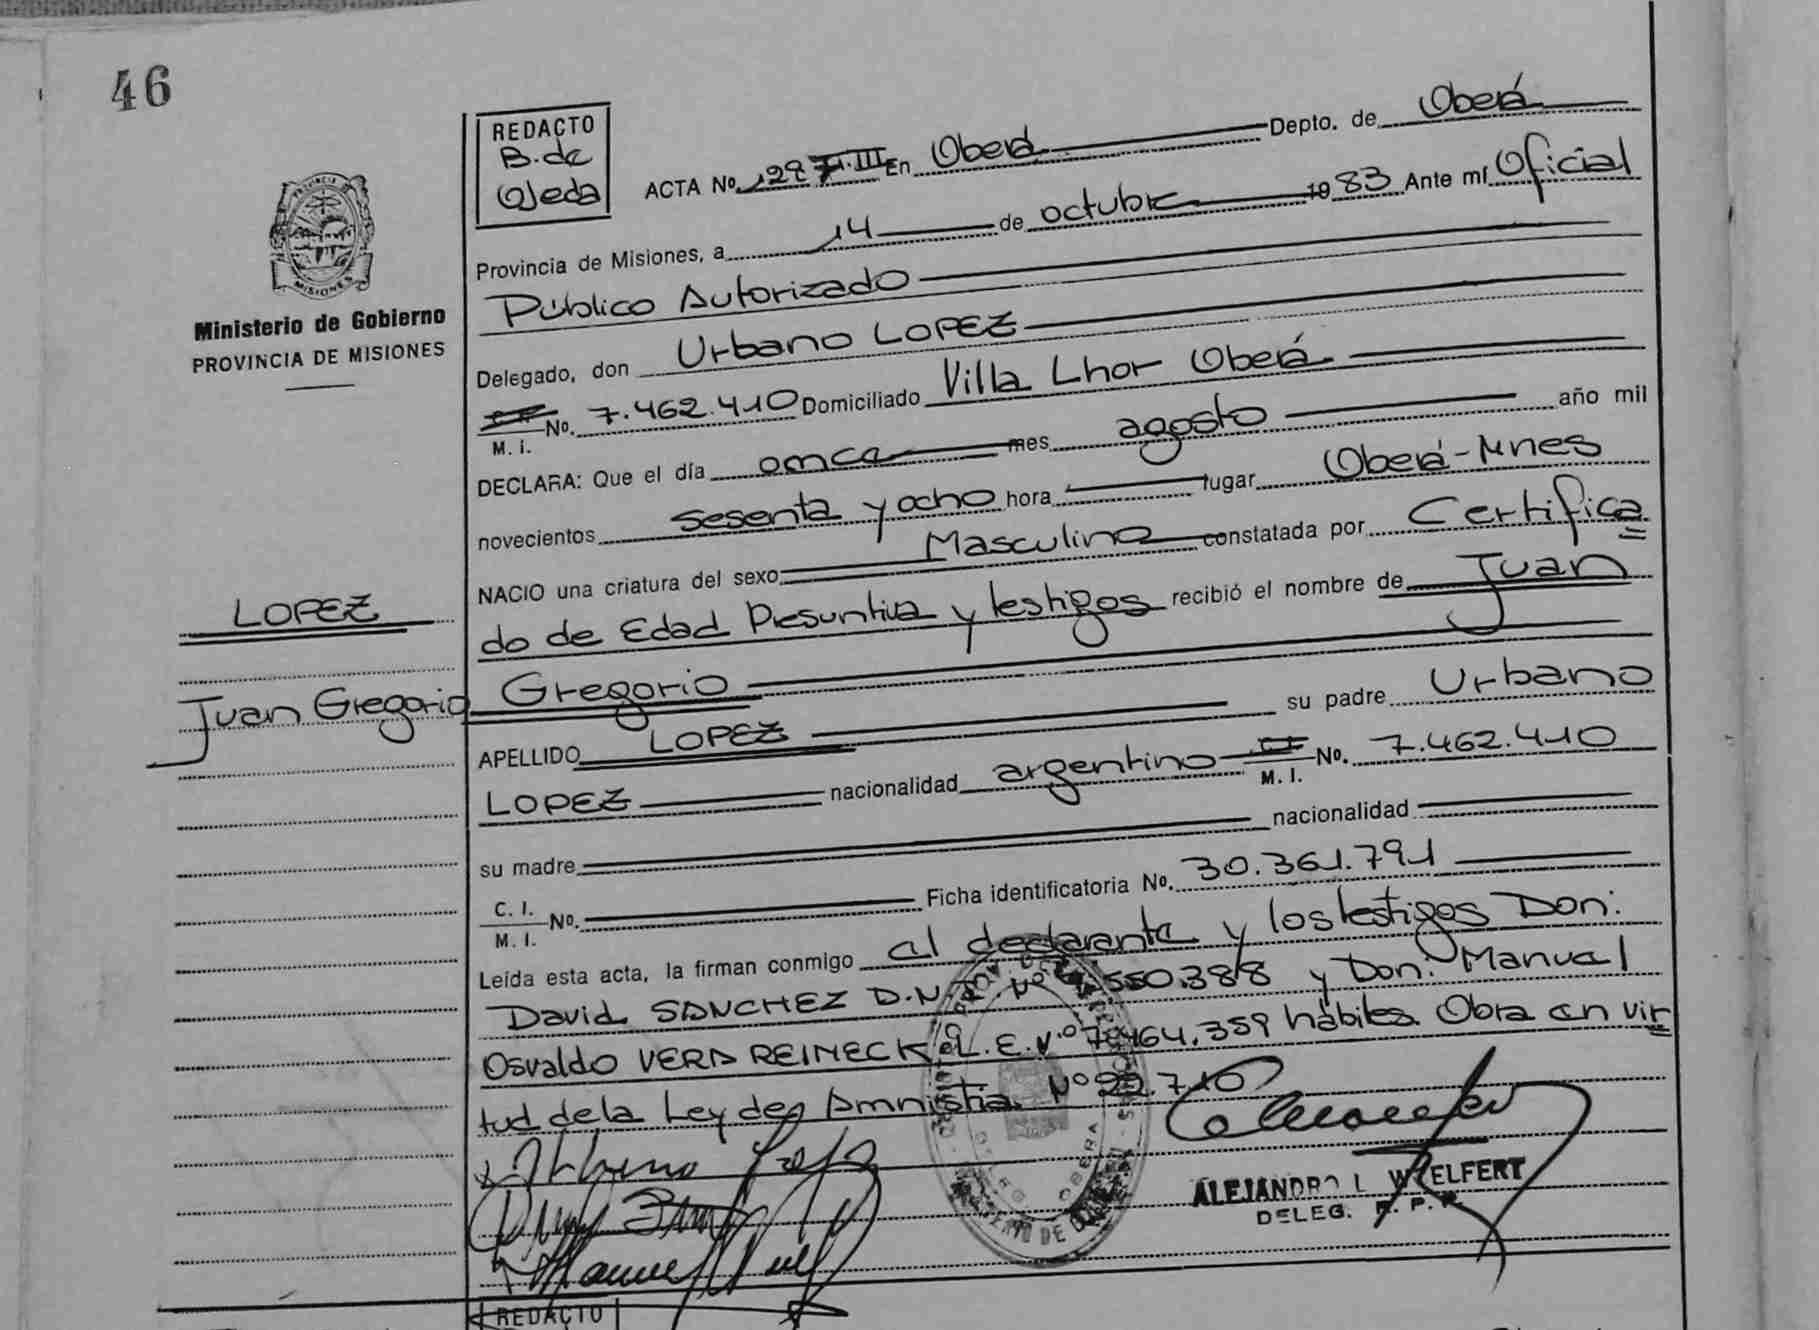 46
REDACTO
B. de
Ojeda
ACTA No 1287-III En Oberá Depto. de Oberá
Provincia de Misiones, a 14 de octubre 1983 Ante mí Oficial
Público Autorizado
Delegado, don Urbano LOPEZ
M. I. No. 7.462.410 Domiciliado Villa Lhor Oberá
DECLARA: Que el día once mes agosto año mil
novecientos sesenta y ocho hora lugar Oberá-Mnes
NACIO una criatura del sexo Masculino constatada por Certifica
do de Edad Presuntiva y testigos recibió el nombre de Juan
Gregorio
APELLIDO LOPEZ su padre Urbano
LOPEZ nacionalidad argentino M. I. No. 7.462.410
su madre nacionalidad
C. I. M. I. No. Ficha identificatoria No. 30.361.791
Leída esta acta, la firman conmigo el declarante y los testigos Don:
David SANCHEZ D.N.I. Nº 550.388 y Don: Manuel
Osvaldo VERA REINECK L.E. Nº 7.464.359 hábiles. Obra en vir
tud de la Ley de Amnistia Nº 22.710
ALEJANDRO L. WELFERT
DELEG.
PROVINCIA DE
MISIONES
Ministerio de Gobierno
PROVINCIA DE MISIONES
LOPEZ
Juan Gregorio
OBERA
REDACTO